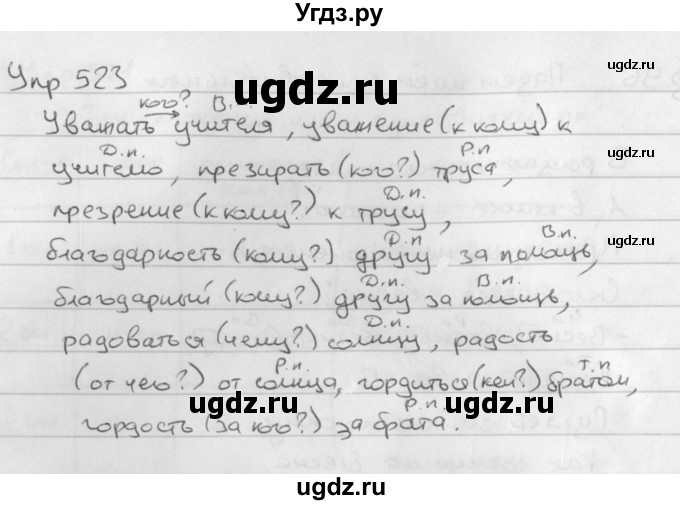 Угдз.ру
ugdz.ru ugdz.ru ugdz.ru
Упр 523
кого? В.
Уважать учителя, уважение (к кому) к
Д.п. Р.п
учителю, презирать (кого?) труса,
Д.п.
презрение (к кому?) к трусу,
Д.п В.п.
благодарность (кому?) другу за помощь,
Д.п. В.п.
благодарный (кому?) другу за помощь,
Д.п.
радоваться (чему?) солнцу, радость
Р.п. Т.п
(от чего?) от солнца, гордиться (кем?) братом,
Р.п
гордость (за кого?) за брата.
ugdz.ru ugdz.ru ugdz.ru
ugdz.ru ugdz.ru ugdz.ru
ugdz.ru